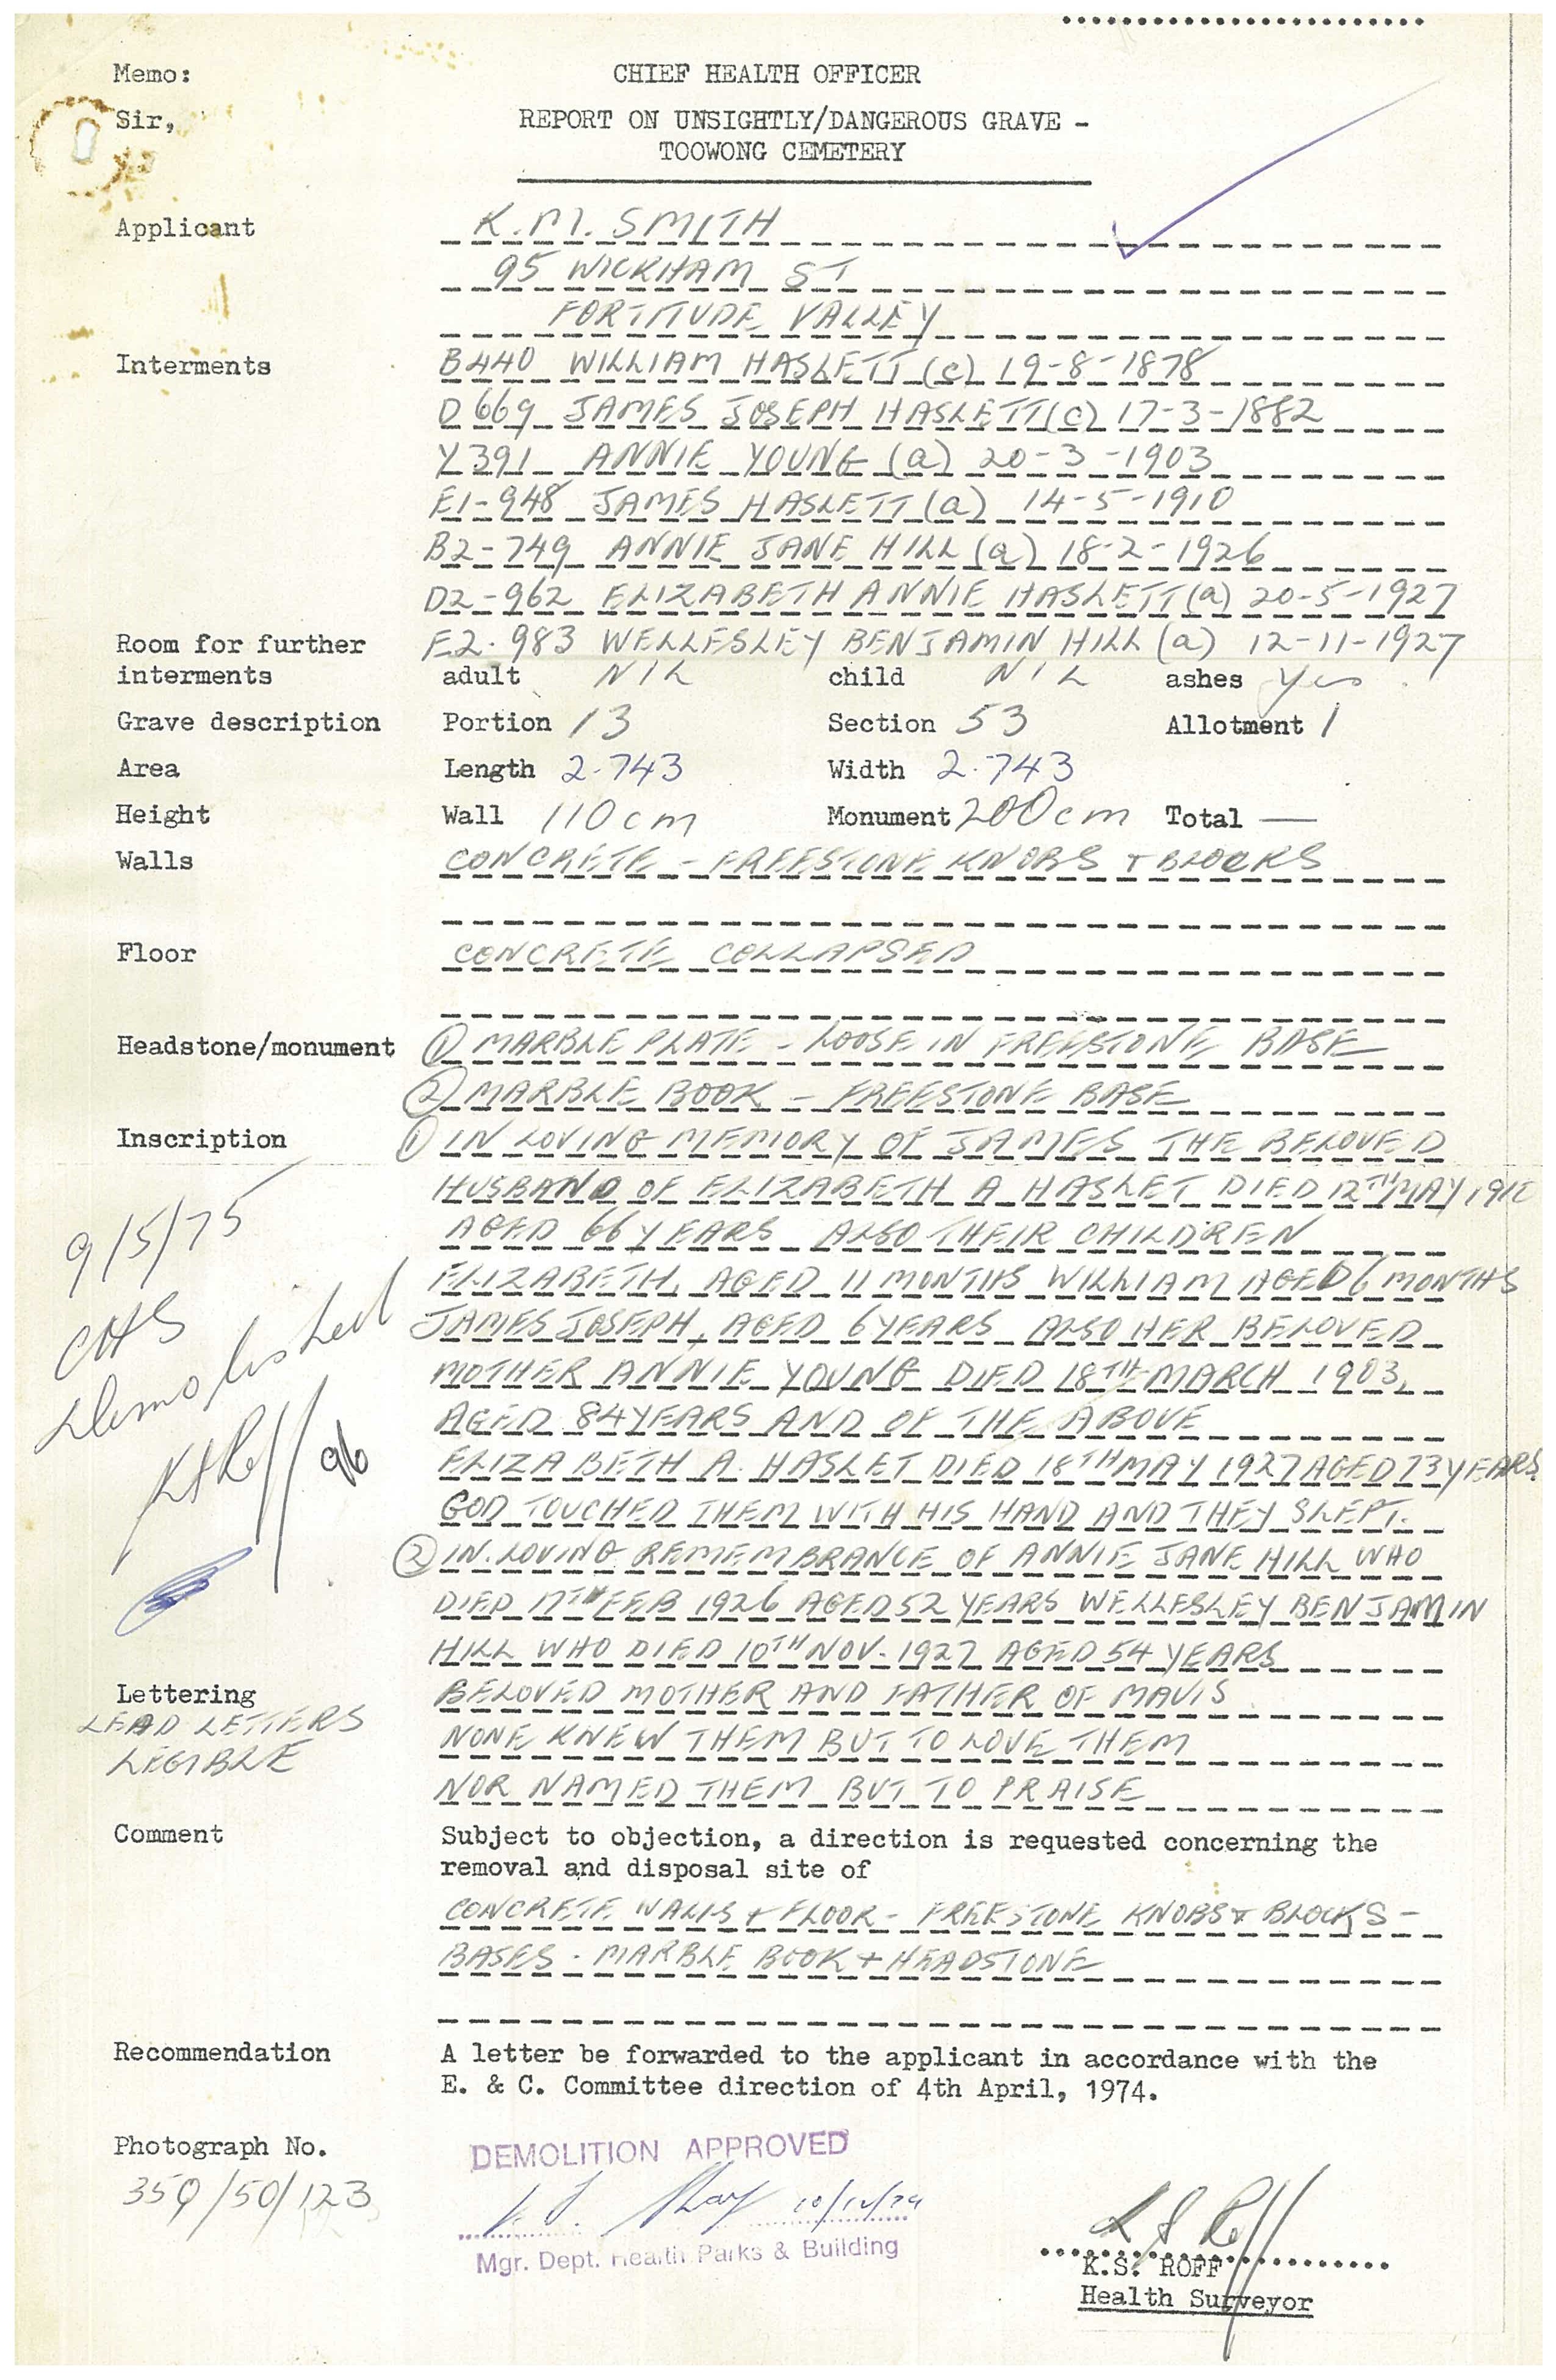 Memo:
CHIEF HEALTH OFFICER
Sir,
REPORT ON UNSIGHTLY/DANGEROUS GRAVE -
TOOWONG CEMETERY
Applicant K.M. SMITH
95 WICKHAM ST
FORTITUDE VALLEY
Interments B440 WILLIAM HASLETT (c) 19-8-1878
D669 JAMES JOSEPH HASLETT (c) 17-3-1882
Y391 ANNIE YOUNG (a) 20-3-1903
E1-948 JAMES HASLETT (a) 14-5-1910
B2-749 ANNIE JANE HILL (a) 18-2-1926
D2-962 ELIZABETH ANNIE HASLETT (a) 20-5-1927
Room for further E2.983 WELLESLEY BENJAMIN HILL (a) 12-11-1927
interments adult NIL child NIL ashes yes
Grave description Portion 13 Section 53 Allotment 1
Area Length 2.743 Width 2.743
Height Wall 110cm Monument 200cm Total —
Walls CONCRETE - FREESTONE KNOBS + BLOCKS
Floor CONCRETE COLLAPSED
Headstone/monument ① MARBLE PLATE - LOOSE IN FREESTONE BASE
② MARBLE BOOK - FREESTONE BASE
Inscription ① IN LOVING MEMORY OF JAMES THE BELOVED
HUSBAND OF ELIZABETH A HASLET DIED 12TH MAY 1910
AGED 66 YEARS ALSO THEIR CHILDREN
ELIZABETH, AGED 11 MONTHS WILLIAM AGED 6 MONTHS
JAMES JOSEPH, AGED 6 YEARS ALSO HER BELOVED
MOTHER ANNIE YOUNG DIED 18TH MARCH 1903,
AGED 84 YEARS AND OF THE ABOVE
ELIZABETH A. HASLET DIED 18TH MAY 1927 AGED 73 YEARS.
GOD TOUCHED THEM WITH HIS HAND AND THEY SLEPT.
② IN LOVING REMEMBRANCE OF ANNIE JANE HILL WHO
DIED 17TH FEB 1926 AGED 52 YEARS WELLESLEY BENJAMIN
HILL WHO DIED 10TH NOV. 1927 AGED 54 YEARS
BELOVED MOTHER AND FATHER OF MAVIS
NONE KNEW THEM BUT TO LOVE THEM
NOR NAMED THEM BUT TO PRAISE
9/5/75
CHS
Demolished
Lettering
LEAD LETTERS
LEGIBLE
Comment Subject to objection, a direction is requested concerning the
removal and disposal site of
CONCRETE WALLS + FLOOR - FREESTONE KNOBS & BLOCKS -
BASES - MARBLE BOOK + HEADSTONE
Recommendation A letter be forwarded to the applicant in accordance with the
E. & C. Committee direction of 4th April, 1974.
Photograph No.
359/50/123
DEMOLITION APPROVED
10/12/74
Mgr. Dept. Health Parks & Building
K.S. ROFF
Health Surveyor